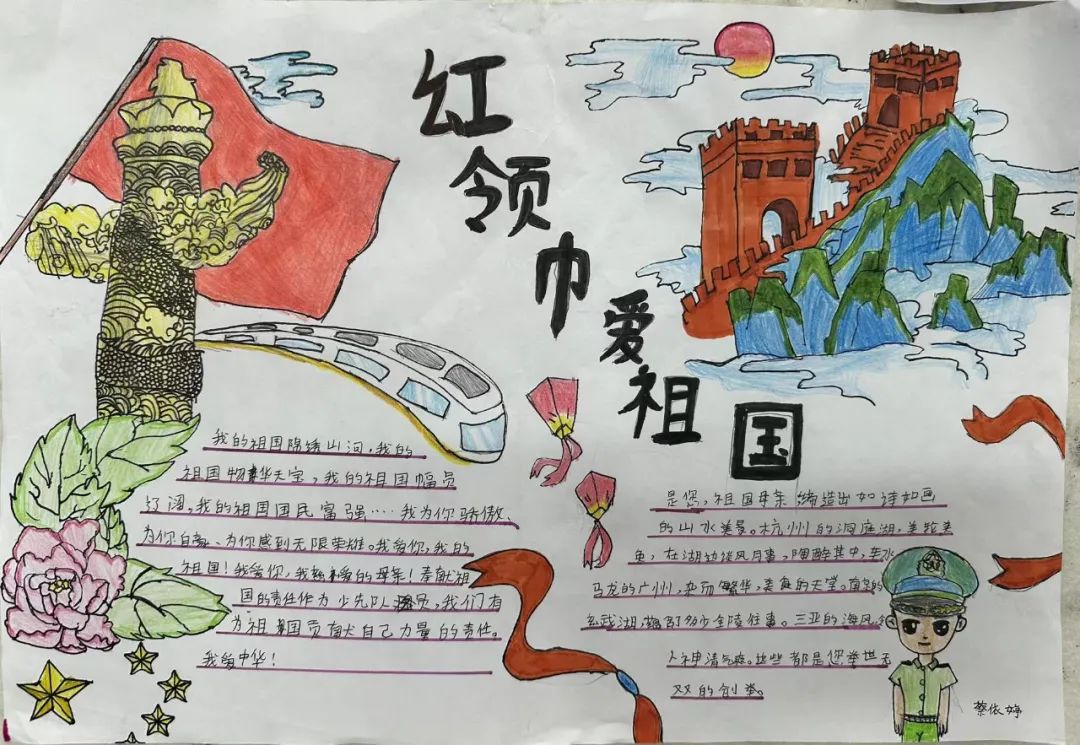 红领巾爱祖国
我的祖国锦锈山河,我的
祖国物華华天宝,我的祖国幅员
辽阔,我的祖国国民富强…我为你骄傲、
为你自豪、为你感到无限荣雄。我爱你,我的
祖国!我爱你,我爱的母亲!奉献祖
国的责任作为少先队员,我们有
为祖国贡献自己力量的责任。
我爱中华!
是您,祖国母亲缔造出如诗如画
的山水美景。杭州的洞庭湖,美
在湖边谈风月事,陶醉其中,车水
马龙的广州,杂而繁华,美食的天堂。南京的
玄武湖,多少金陵往事。三亚的海风
人神清气爽。这些都是您举世无
双的创举。
蔡依婷